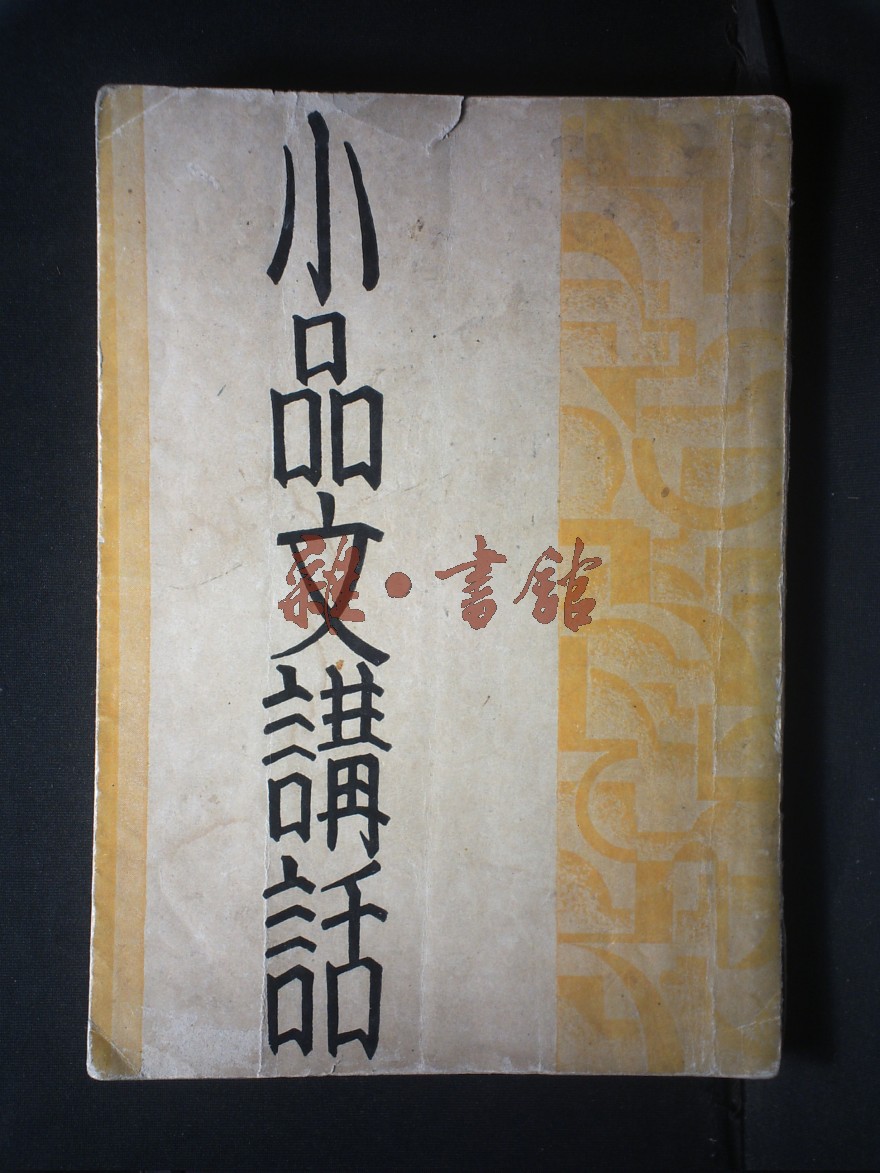 小品文講話
雜·書館